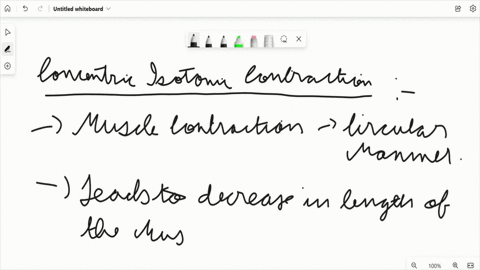 Untitled whiteboard
Concentric Isotonic Contraction :-
-> Muscle Contraction -> Circular
Manner.
-> Leads to decrease in length of
the Mus
100%